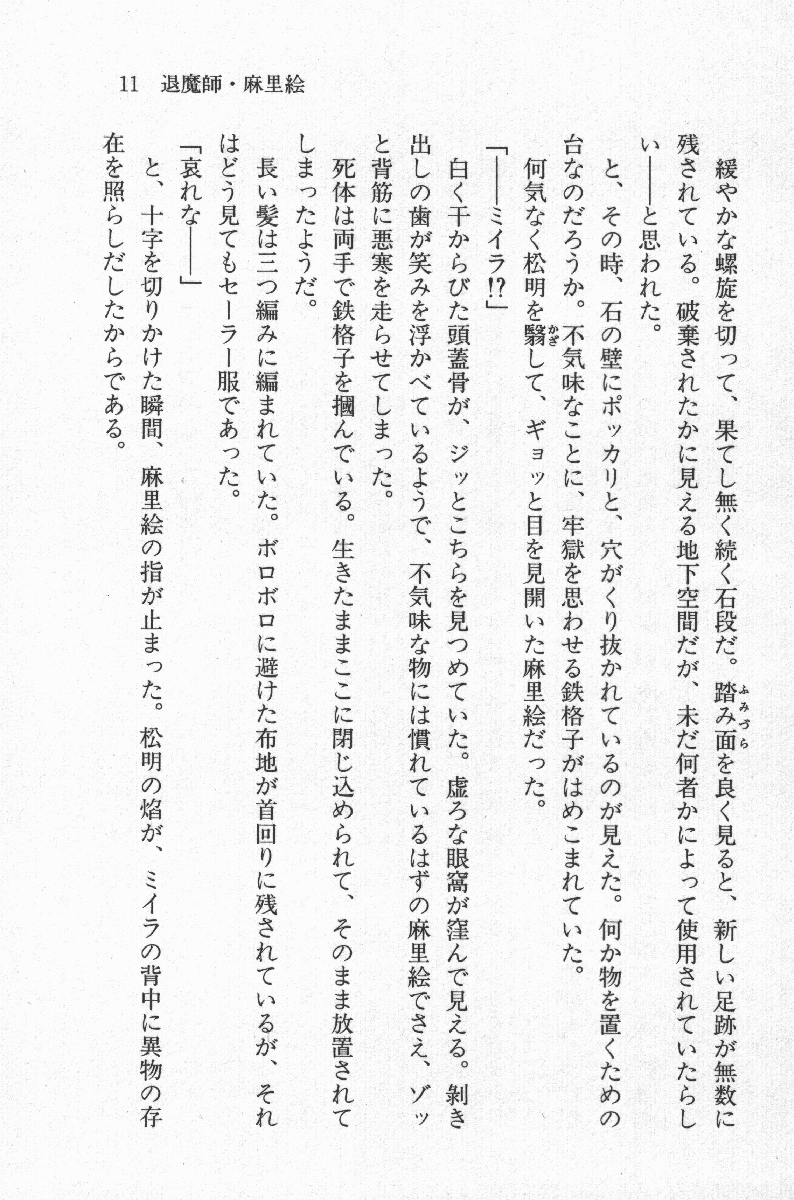 11　退魔師・麻里絵
　緩やかな螺旋を切って、果てし無く続く石段だ。踏み面を良く見ると、新しい足跡が無数に
残されている。破棄されたかに見える地下空間だが、未だ何者かによって使用されていたらし
い――と思われた。
　と、その時、石の壁にポッカリと、穴がくり抜かれているのが見えた。何か物を置くための
台なのだろうか。不気味なことに、牢獄を思わせる鉄格子がはめこまれていた。
　何気なく松明を翳して、ギョッと目を見開いた麻里絵だった。
「――ミイラ!?」
　白く干からびた頭蓋骨が、ジッとこちらを見つめていた。虚ろな眼窩が窪んで見える。剝き
出しの歯が笑みを浮かべているようで、不気味な物には慣れているはずの麻里絵でさえ、ゾッ
と背筋に悪寒を走らせてしまった。
　死体は両手で鉄格子を摑んでいる。生きたままここに閉じ込められて、そのまま放置されて
しまったようだ。
　長い髪は三つ編みに編まれていた。ボロボロに避けた布地が首回りに残されているが、それ
はどう見てもセーラー服であった。
「哀れな――」
　と、十字を切りかけた瞬間、麻里絵の指が止まった。松明の焰が、ミイラの背中に異物の存
在を照らしだしたからである。